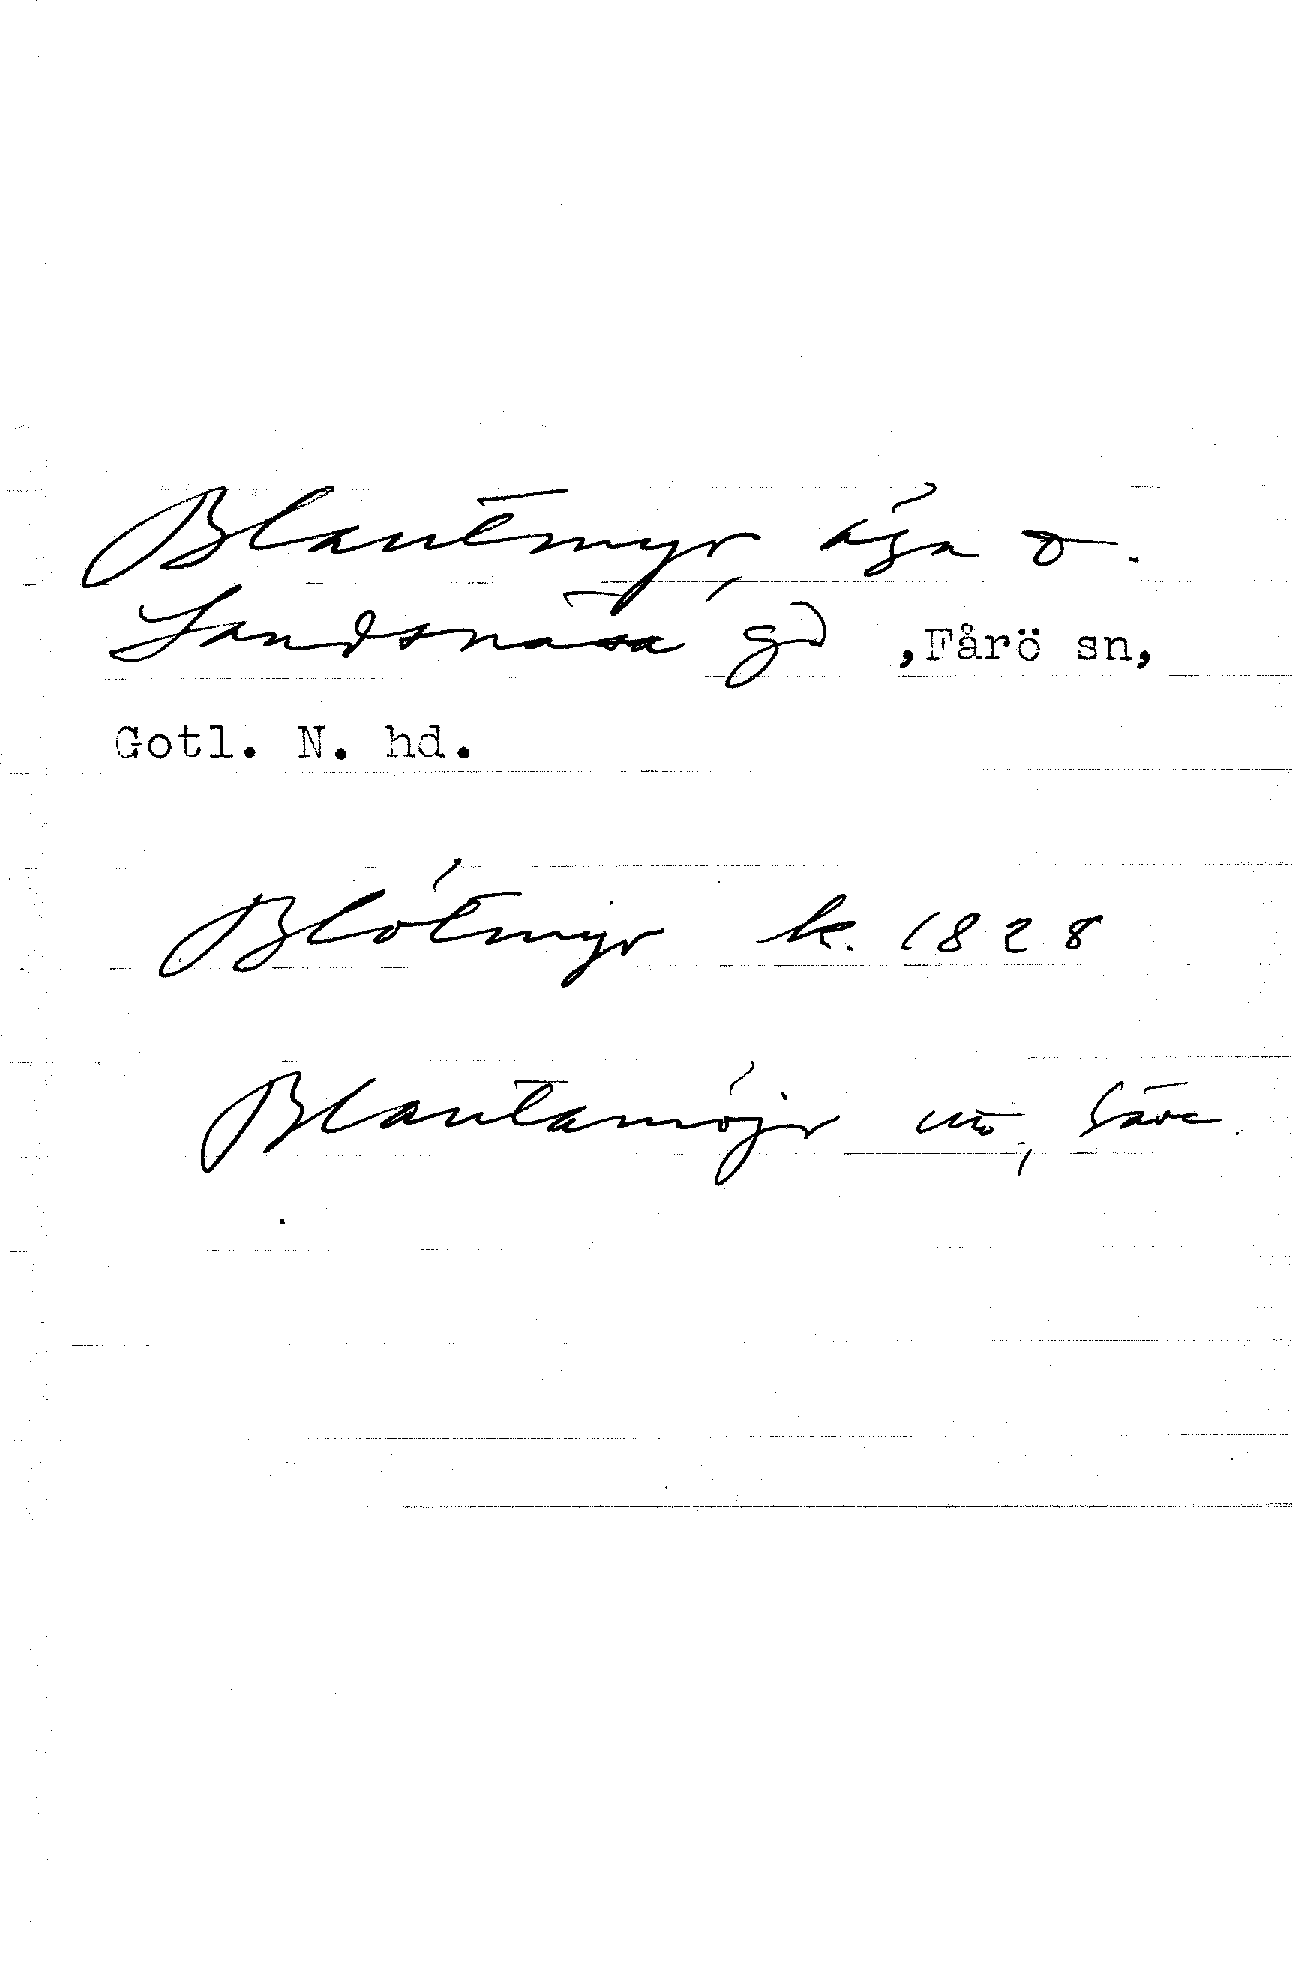 Blautmyr, äga o.
Landsnäsa gd ,Fårö sn,
Gotl. N. hd.
Blötmyr k. 1828
Blautamöjr utt, Säve